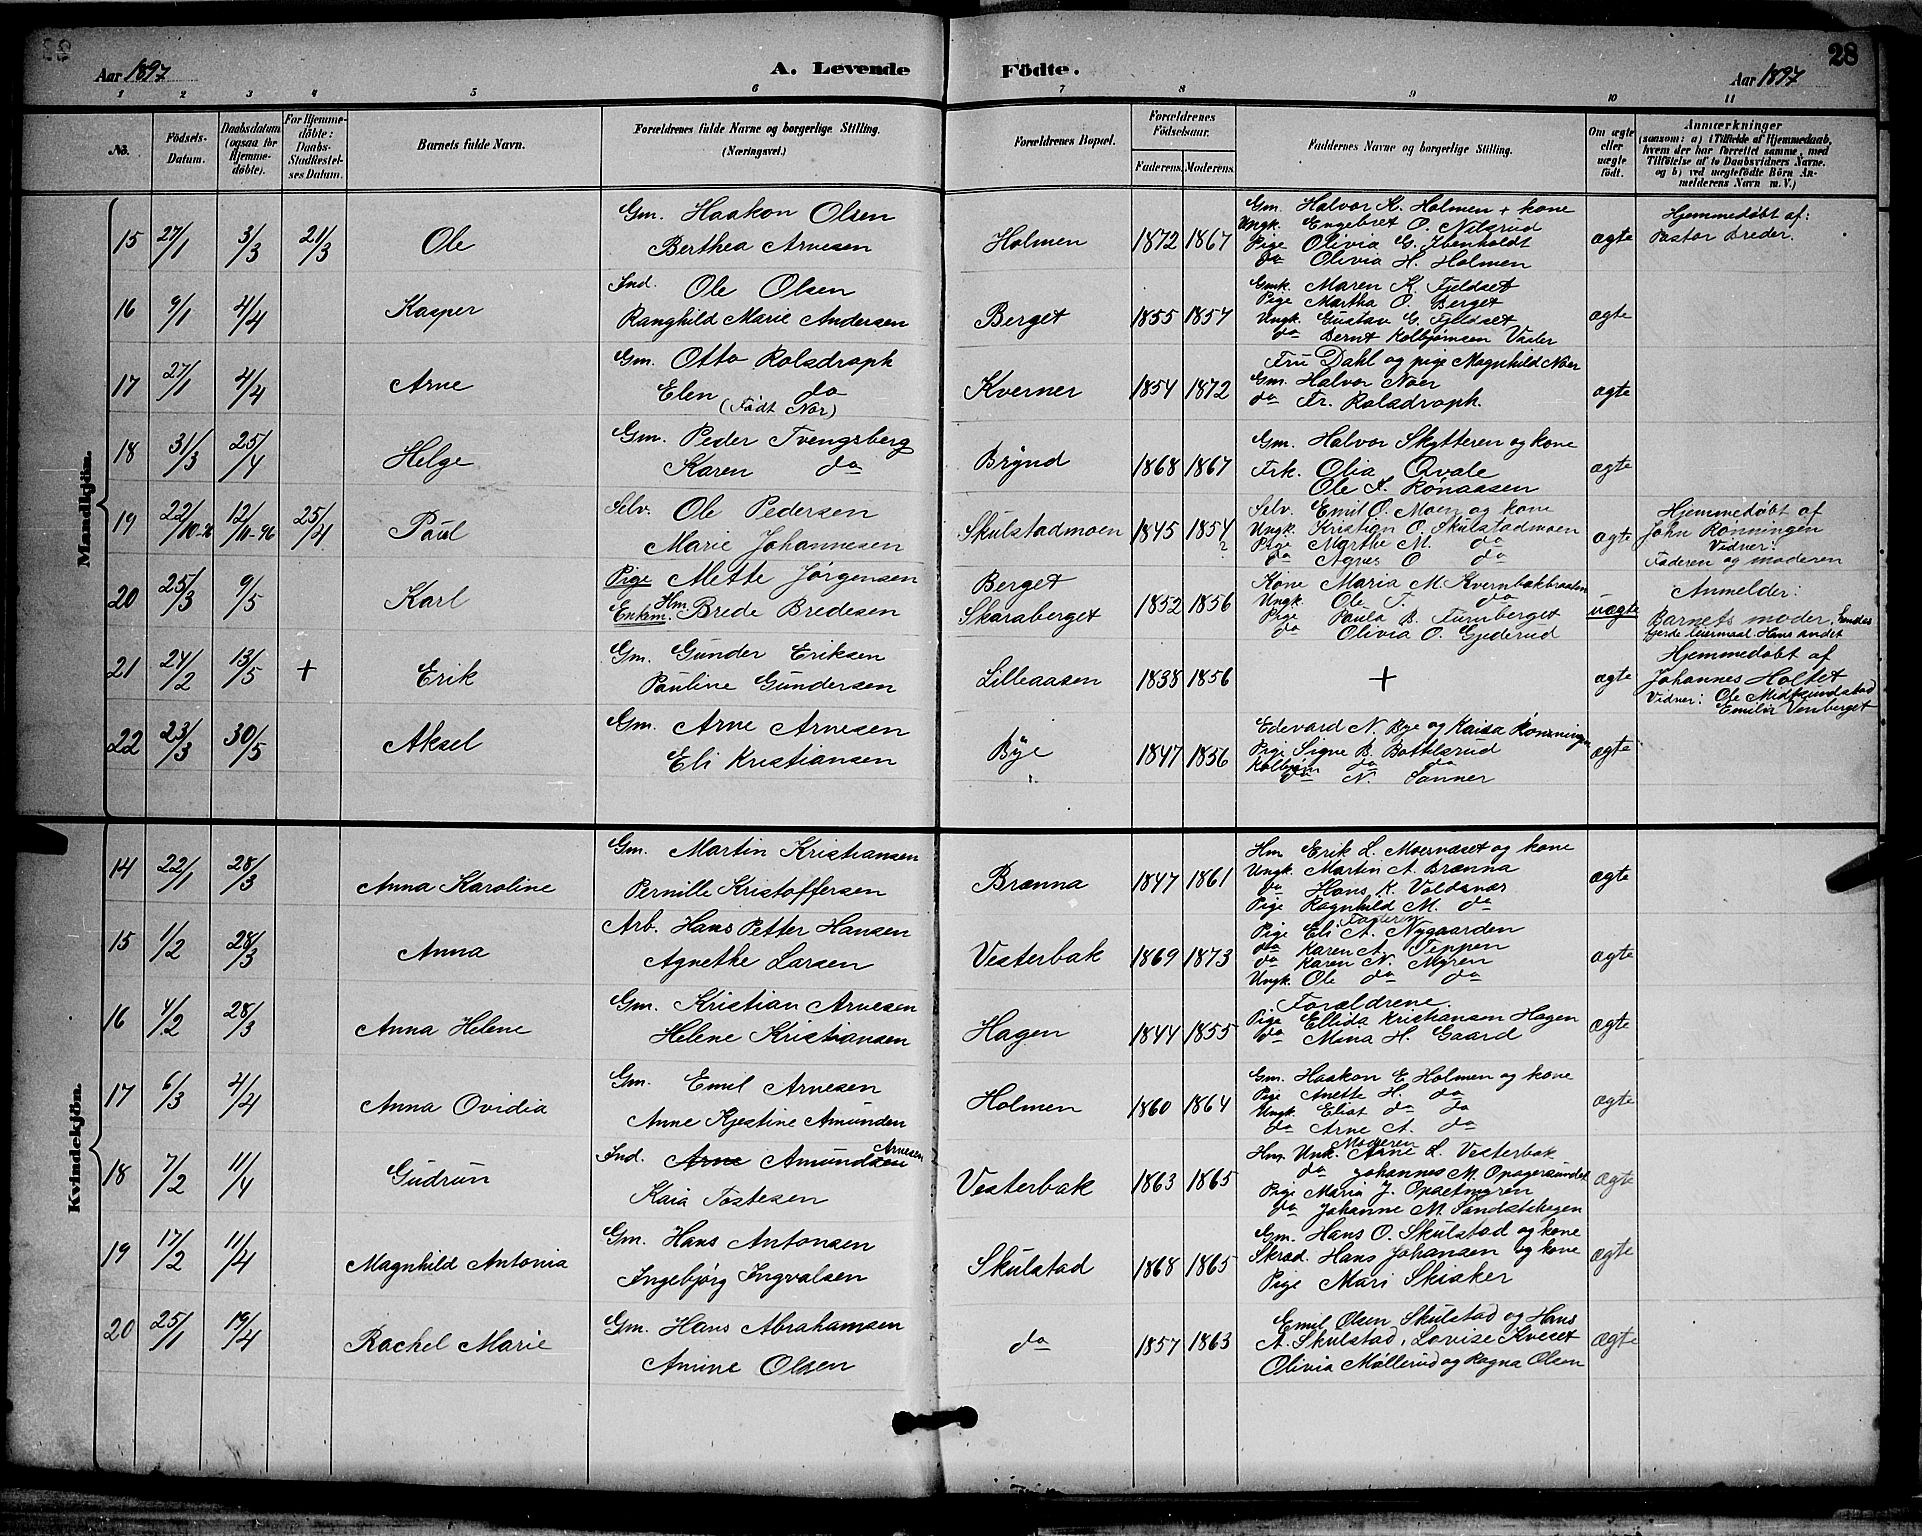 28
Aar 1897
A. Levende Födte.
Aar 1897
1 2 3 4 5 6 7 8 9 10 11
No.
Födsels-Datum.
Daabsdatum (ogsaa for Hjemme-döbte).
For Hjemme-döbte: Daabs-Stadfæstel-ses Datum.
Barnets fulde Navn.
Forældrenes fulde Navne og borgerlige Stilling. (Næringsvei.)
Forældrenes Bopæl.
Forældrenes Födselsaar.
Faderens. Moderens.
Faddernes Navne og borgerlige Stilling.
Om ægte eller uægte født.
Anmærkninger
(saasom: a) i Tilfælde af Hjemmedaab, hvem der har forrettet samme, med Tilföielse af to Daabsvidners Navne, og b) ved uægtefödte Börn An-melderens Navn m. V.)
Mandkjön.
15 27/1 3/3 21/3 Ole
Gm. Haakon Olsen
Berthea Arnesen
Holmen 1872 1867
Gm. Halvor K. Holmen + kone
Ungk. Engebret O. Nilsrud
Pige Olivia G. Ibenholdt
do Olivia H. Holmen
ægte
Hjemmedøbt af:
Pastor Breder.
16 9/1 4/4 Kasper
Ind. Ole Olsen
Ranghild Marie Andersen
Berget 1855 1857
Gmk. Maren K. Fjeldset
Pige Martha O. Berget
Ungk. Gustav G. Fjeldset
do Bernt Kolbjørnsen Vader
ægte
17 27/1 4/4 Arne
Gm. Otto Rolsdroph
Elen do
(Født Nor)
Kverner 1854 1872
Fru Dahl og pige Magnhild Noer
Gm. Halvor Noer
do Fr. Rolsdroph.
ægte
18 31/3 25/4 Helge
Gm. Peder Tvengsberg
Karen do
Brynd 1868 1867
Gm. Halvor Skytteren og kone
Frk. Olia Qvale
Ole A. Rønaasen
ægte
19 22/10-96 12/11-96 25/4 Paul
Selv. Ole Pedersen
Marie Johannesen
Skulstadmoen 1845 1854
?
Selv. Emil O. Moen og kone
Ungk. Kristian O. Skulstadmoen
Pige Marthe M. do
do Agnes O do
ægte
Hjemmedøbt af
John Rønningen
Vidner:
Faderen og moderen
20 25/3 9/5 Karl
Pige Mette Jørgensen
Enkem. Hm. Brede Bredesen
Berget
Skaraberget 1852 1856
Kone Maria M. Kvernbakbraaten
Ungk. Ole T. do
Pige Paula B. Furuberget
do Olivia O. Gjederud
uægte
Anmelder:
Barnets moder, hendes
fjerde leiermaal Hans andet
21 24/2 13/5 + Erik
Gm. Gunder Eriksen
Pauline Gundersen
Lilleaasen 1838 1856
+
ægte
Hjemmedøbt af
Johannes Holtet
Vidner: Ole Midtsundstad
Emilie Venberget
22 23/3 30/5 Aksel
Gm. Arne Arnesen
Eli Kristiansen
Bye 1847 1856
Edevard N. Bye og Kaisa Rønningen
Pige Signe B. Bottilsrud
Kolbjørn do do
do N. Sanner
ægte
Kvindekjön.
14 22/1 28/3 Anna Karoline
Gm. Martin Kristiansen
Pernille Kristoffersen
Brænna 1847 1861
Hm Erik L. Moervaset og kone
Ungk. Martin A. Brænna
do Hans K. Voldsnær
Pige Ragnhild M. do
ægte
15 1/2 28/3 Anna
Arb. Hans Petter Hansen
Agnethe Larsen
Vesterbak 1869 1873
Faderen
Pige Eli A. Nygaarden
do Karen A. Teppen
do Karen N. Myren
Ungk. Ole do do
ægte
16 4/2 28/3 Anna Helene
Gm. Kristian Arnesen
Helene Kristiansen
Hagen 1844 1855
Forældrene.
Pige Ellida Kristiansen Hagen
do Mina H. Gaard
ægte
17 6/3 4/4 Anna Ovidia
Gm. Emil Arnesen
Anne Kjestine Amunden
Holmen 1860 1864
Gm. Haakon E. Holmen og kone
Pige Anette H. do
Ungk. Elias do do
do Arne A. do
ægte
18 7/2 11/4 Gudrun
Ind. Arne Amundsen Arnesen
Kaia Tostesen
Vesterbak 1863 1865
Moderen
Hm. Unk. Arne L. Vesterbak
do Johannes M. Opagersundet
Pige Maria J. Opsetmyren
do Johanne M. Sandstehagen
ægte
19 17/2 11/4 Magnhild Antonia
Gm. Hans Antonsen
Ingebjørg Ingvalsen
Skulstad 1868 1865
Gm. Hans O. Skulstad og kone
Skræd. Hans Johansen og kone
Pige Mari Skisker
ægte
20 25/1 19/4 Rachel Marie
Gm. Hans Abrahamsen
Amine Olsen
do 1857 1863
Emil Olsen Skulstad og Hans
A. Skulstad, Lovise Kveset
Olivia Møllerud og Ragna Olsen
ægte